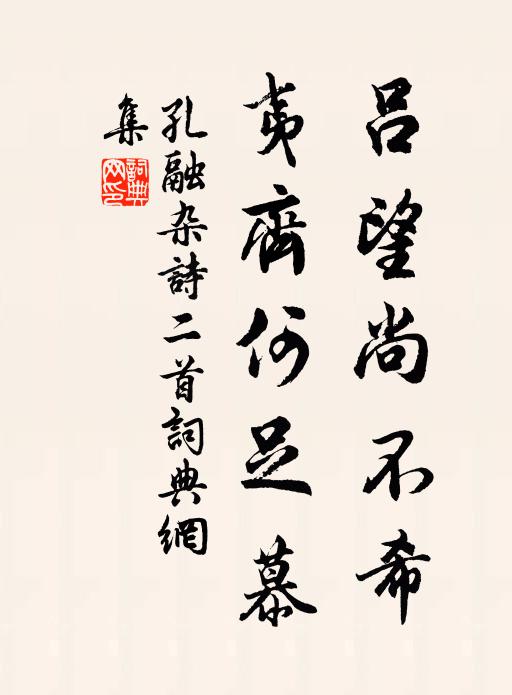 吕望尚不希
夷齊何足慕
孔融杂詩二首詞典網
集
詞典网印